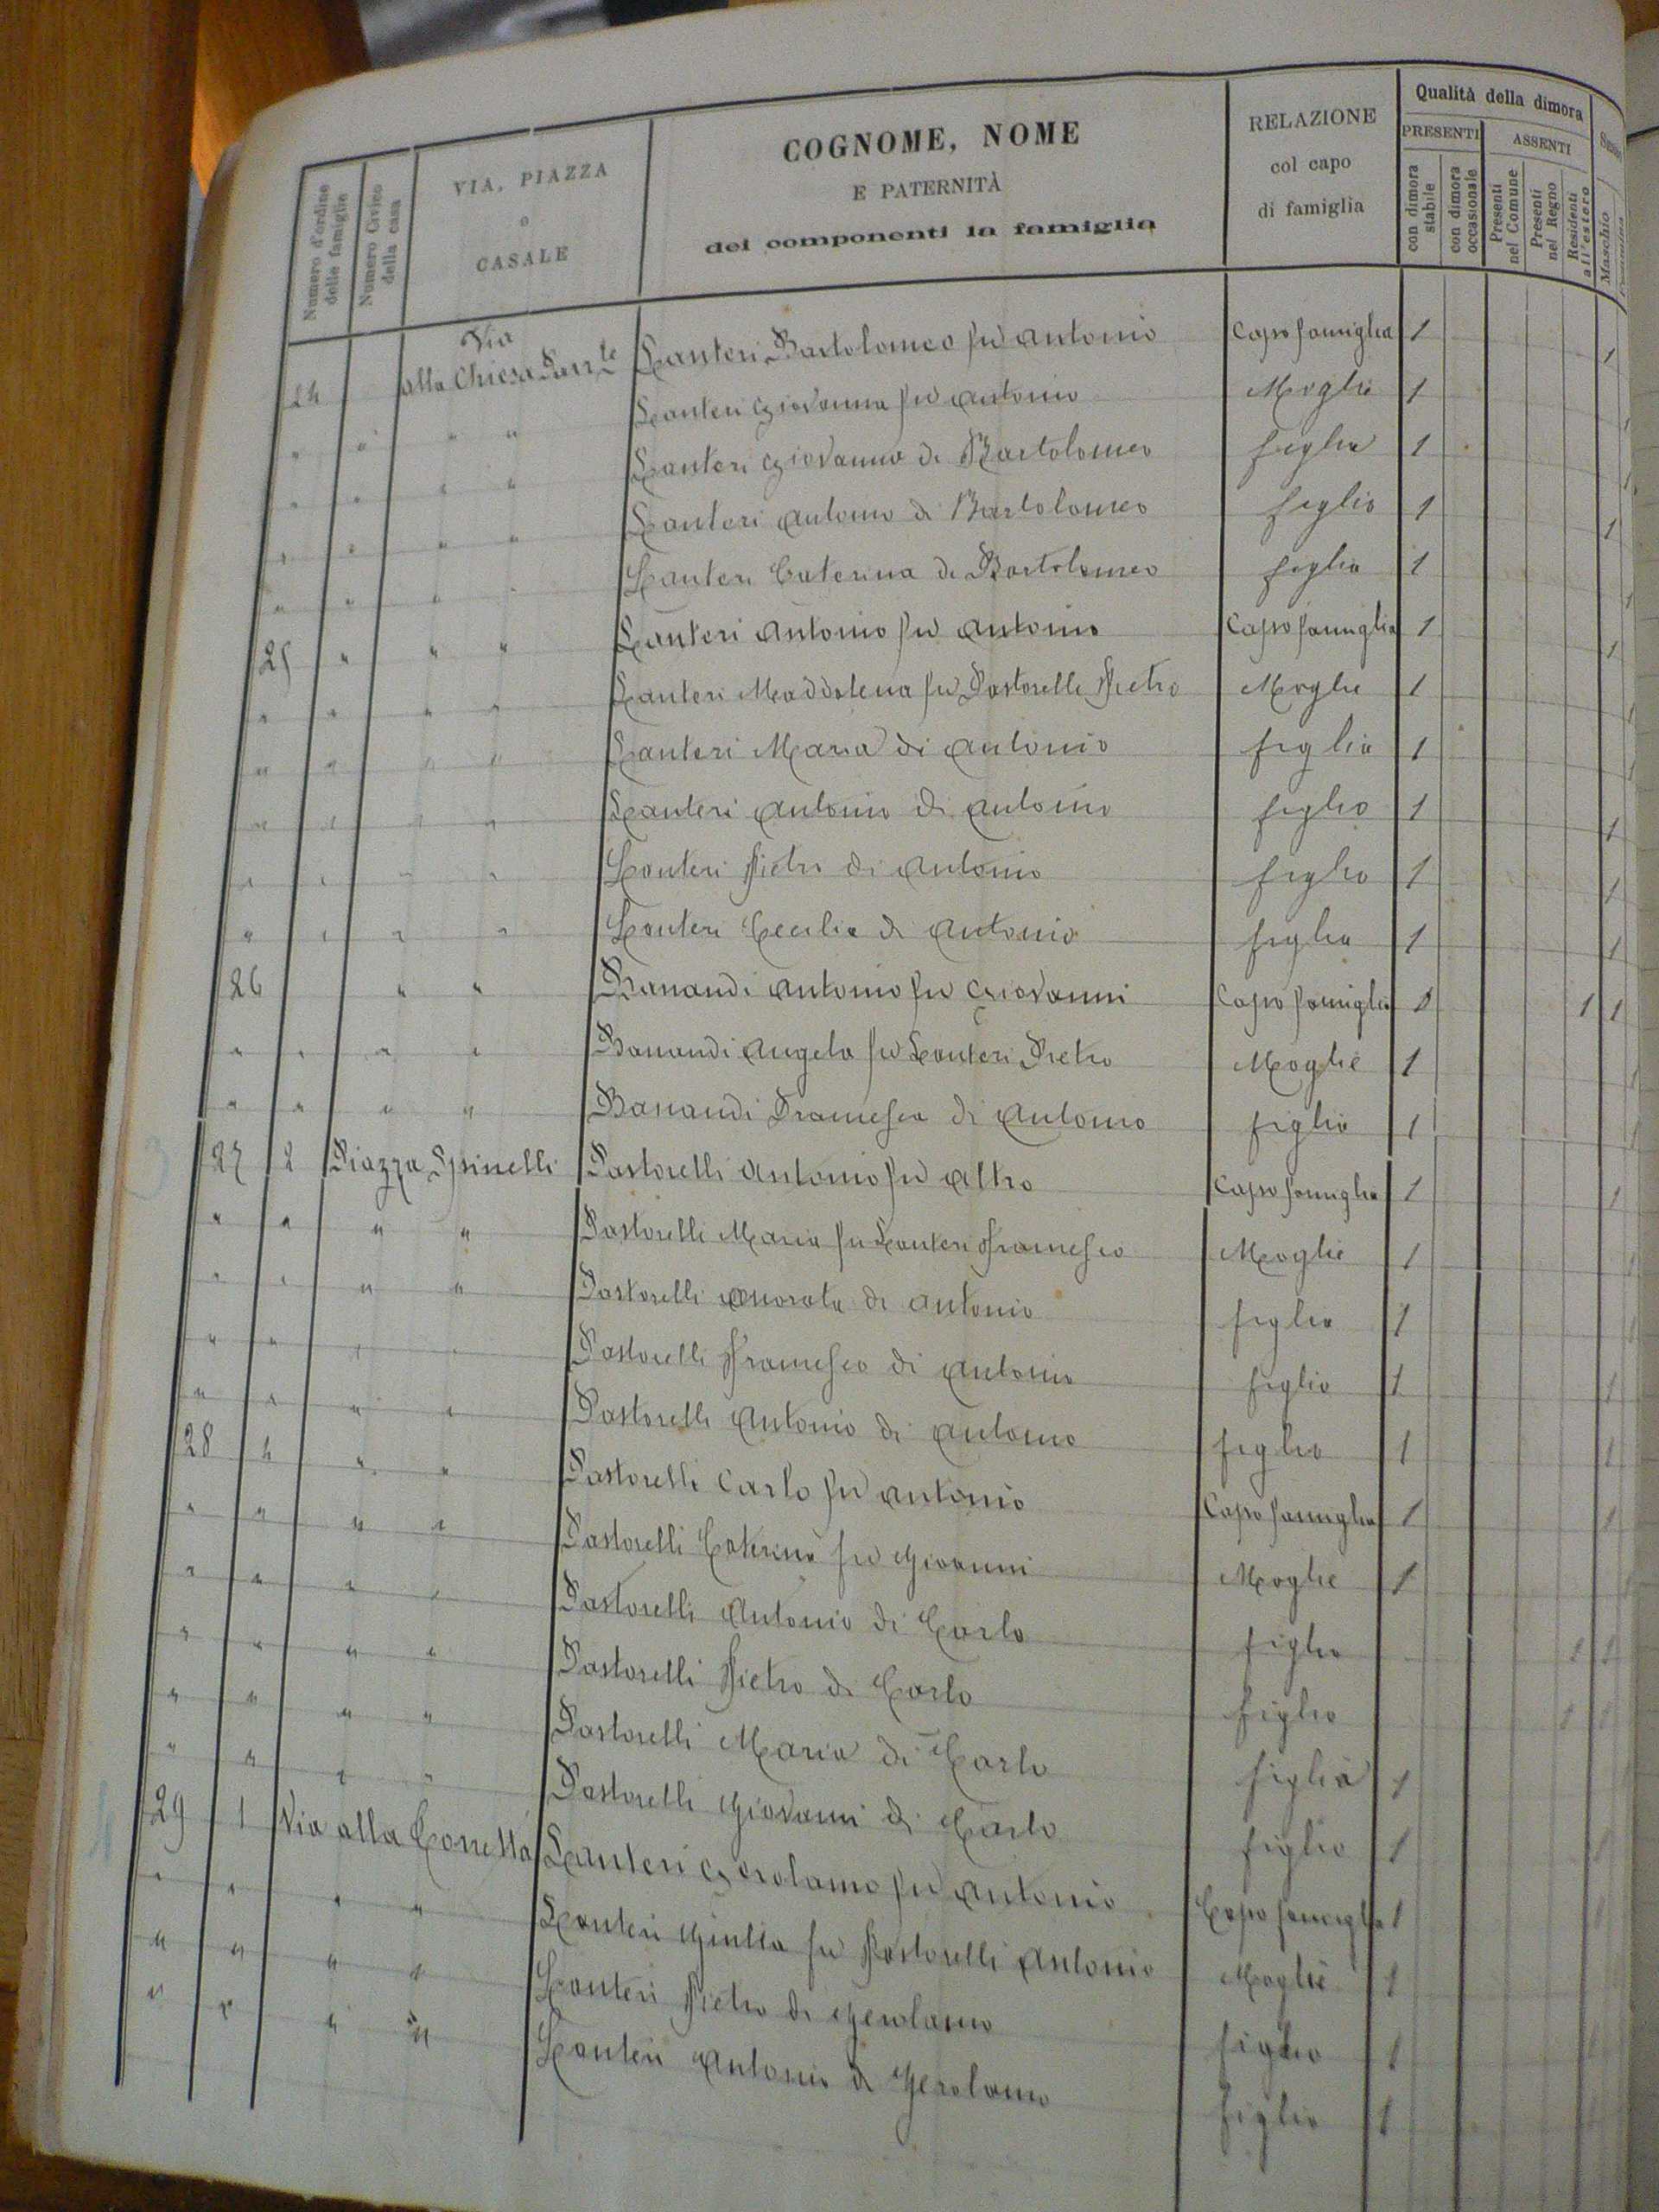 Numero d'ordine delle famiglie
Numero Civico della casa
VIA, PIAZZA
o
CASALE
COGNOME, NOME
E PATERNITÀ
dei componenti la famiglia
RELAZIONE
col capo
di famiglia
Qualità della dimora
PRESENTI
ASSENTI
con dimora stabile
con dimora occasionale
Presenti nel Comune
Presenti nel Regno
Residenti all'estero
Sesso
Maschio
Femmina
24 Via alla Chiesa Parr.le Lanteri Bartolomeo fu Antonio Capo famiglia 1 1
" " " " Lanteri Giovanna fu Antonio Moglie 1 1
" " " " Lanteri Giovanna di Bartolomeo figlia 1 1
" " " " Lanteri Antonio di Bartolomeo figlio 1 1
" " " " Lanteri Caterina di Bartolomeo figlia 1 1
25 " " " Lanteri Antonio fu Antonio Capo famiglia 1 1
" " " " Lanteri Maddalena fu Pastorelli Pietro Moglie 1 1
" " " " Lanteri Maria di Antonio figlia 1 1
" " " " Lanteri Antonio di Antonio figlio 1 1
" " " " Lanteri Pietro di Antonio figlio 1 1
" " " " Lanteri Cecilia di Antonio figlia 1 1
26 " " Banaudi Antonio fu Giovanni Capo famiglia 1 1
" " " " Banaudi Angela fu Lanteri Pietro Moglie 1 1
" " " " Banaudi Francesca di Antonio figlia 1 1
27 2 Piazza Spinelli Pastorelli Antonio fu altro Capo famiglia 1 1
" " " " Pastorelli Maria fu Lanteri Francesco Moglie 1 1
" " " " Pastorelli Onorata di Antonio figlia 1 1
" " " " Pastorelli Francesco di Antonio figlio 1 1
" " " " Pastorelli Antonio di Antonio figlio 1 1
28 4 " " Pastorelli Carlo fu Antonio Capo famiglia 1 1
" " " " Pastorelli Caterina fu Giovanni Moglie 1
" " " " Pastorelli Antonio di Carlo figlio 1 1
" " " " Pastorelli Pietro di Carlo figlio 1 1
" " " " Pastorelli Maria di Carlo figlia 1
" " " " Pastorelli Giovanni di Carlo figlio 1 1
29 1 Via alla Lanteri Gerolamo fu Antonio Capo famiglia 1 1
" " " " Lanteri Giulia fu Pastorelli Antonio Moglie 1
" " " " Lanteri Pietro di Gerolamo figlio 1
" " " " Lanteri Antonio di Gerolamo figlio 1